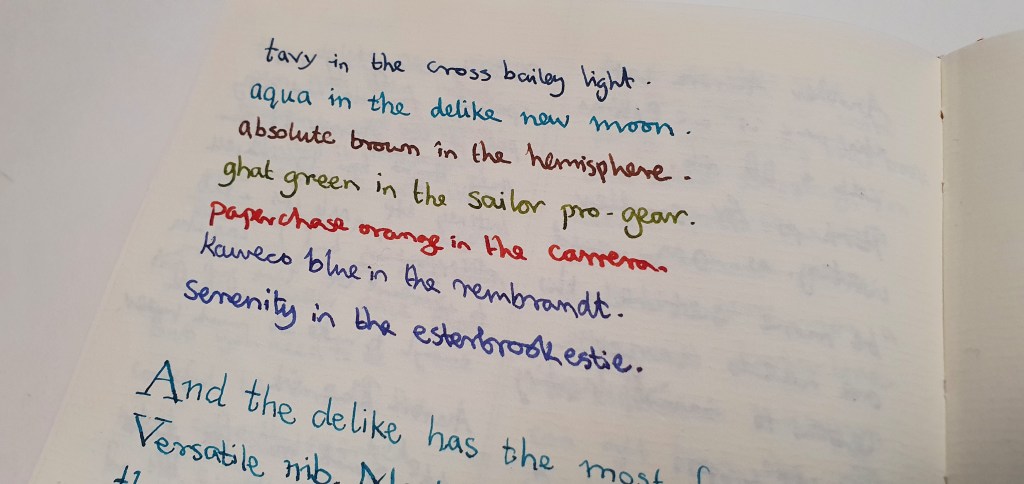 tavy in the cross bailey light.
aqua in the delike new moon.
absolute brown in the hemisphere.
ghat green in the sailor pro-gear.
paperchase orange in the carrera.
kaweco blue in the rembrandt.
serenity in the esterbrook estie.
And the delike has the most
Versatile nib.